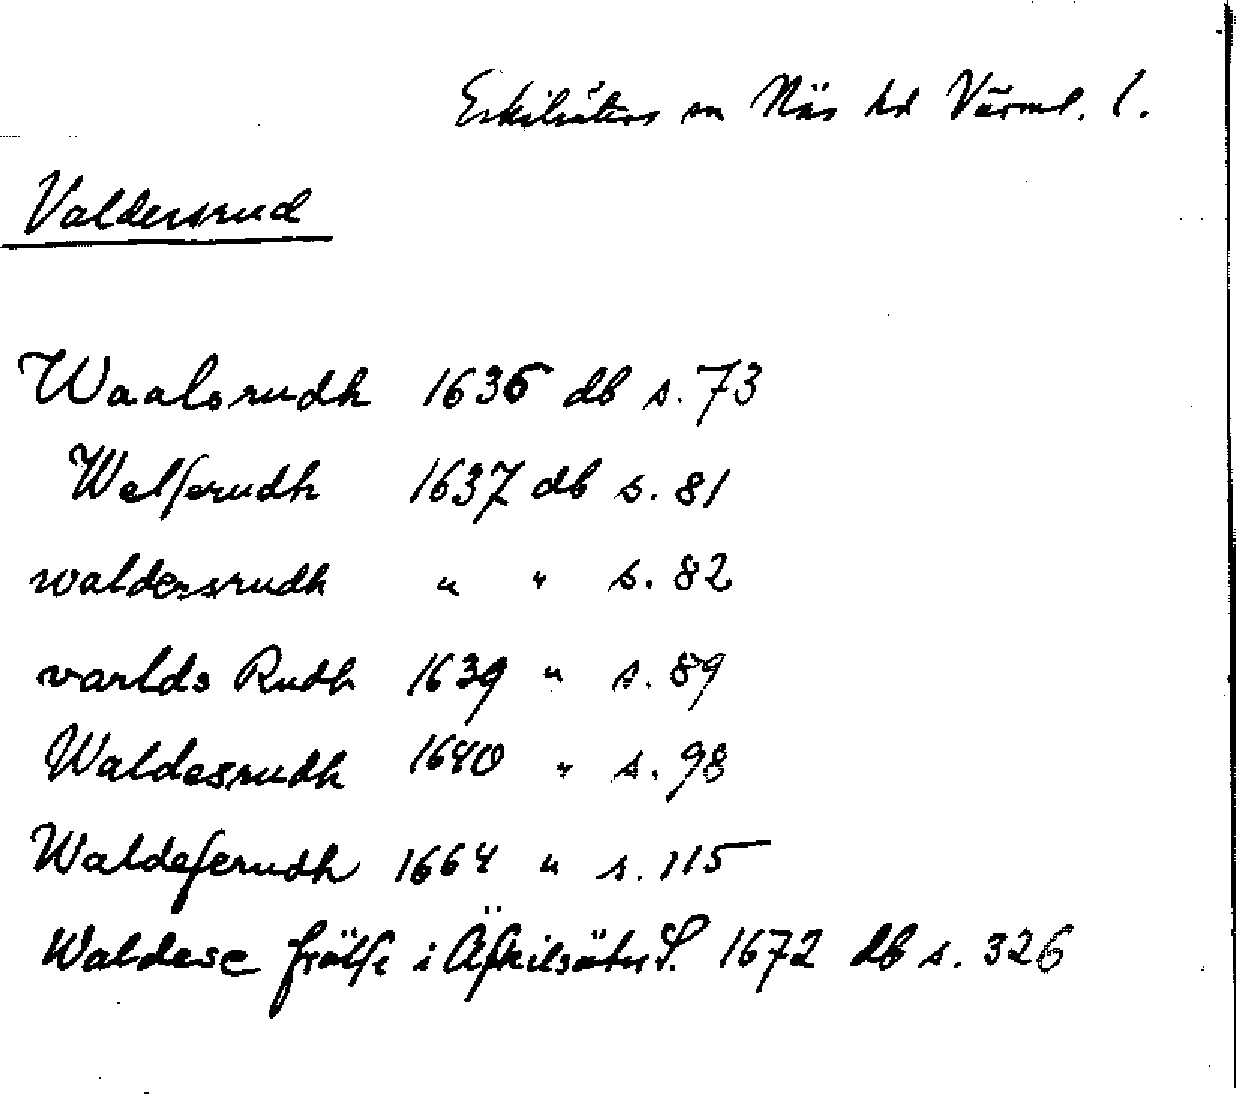 Eskilsäters sn Näs hd Värml. l.
Valdersrud
Waalsrudh 1636 db s. 73
Welserudh 1637 db s. 81
waldersrudh " " s. 82
varlds Rudh 1639 " s. 89
Waldesrudh 1640 " s. 98
Waldeserudh 1664 " s. 115
Waldese frälse i Äskilsäter S. 1672 db s. 326